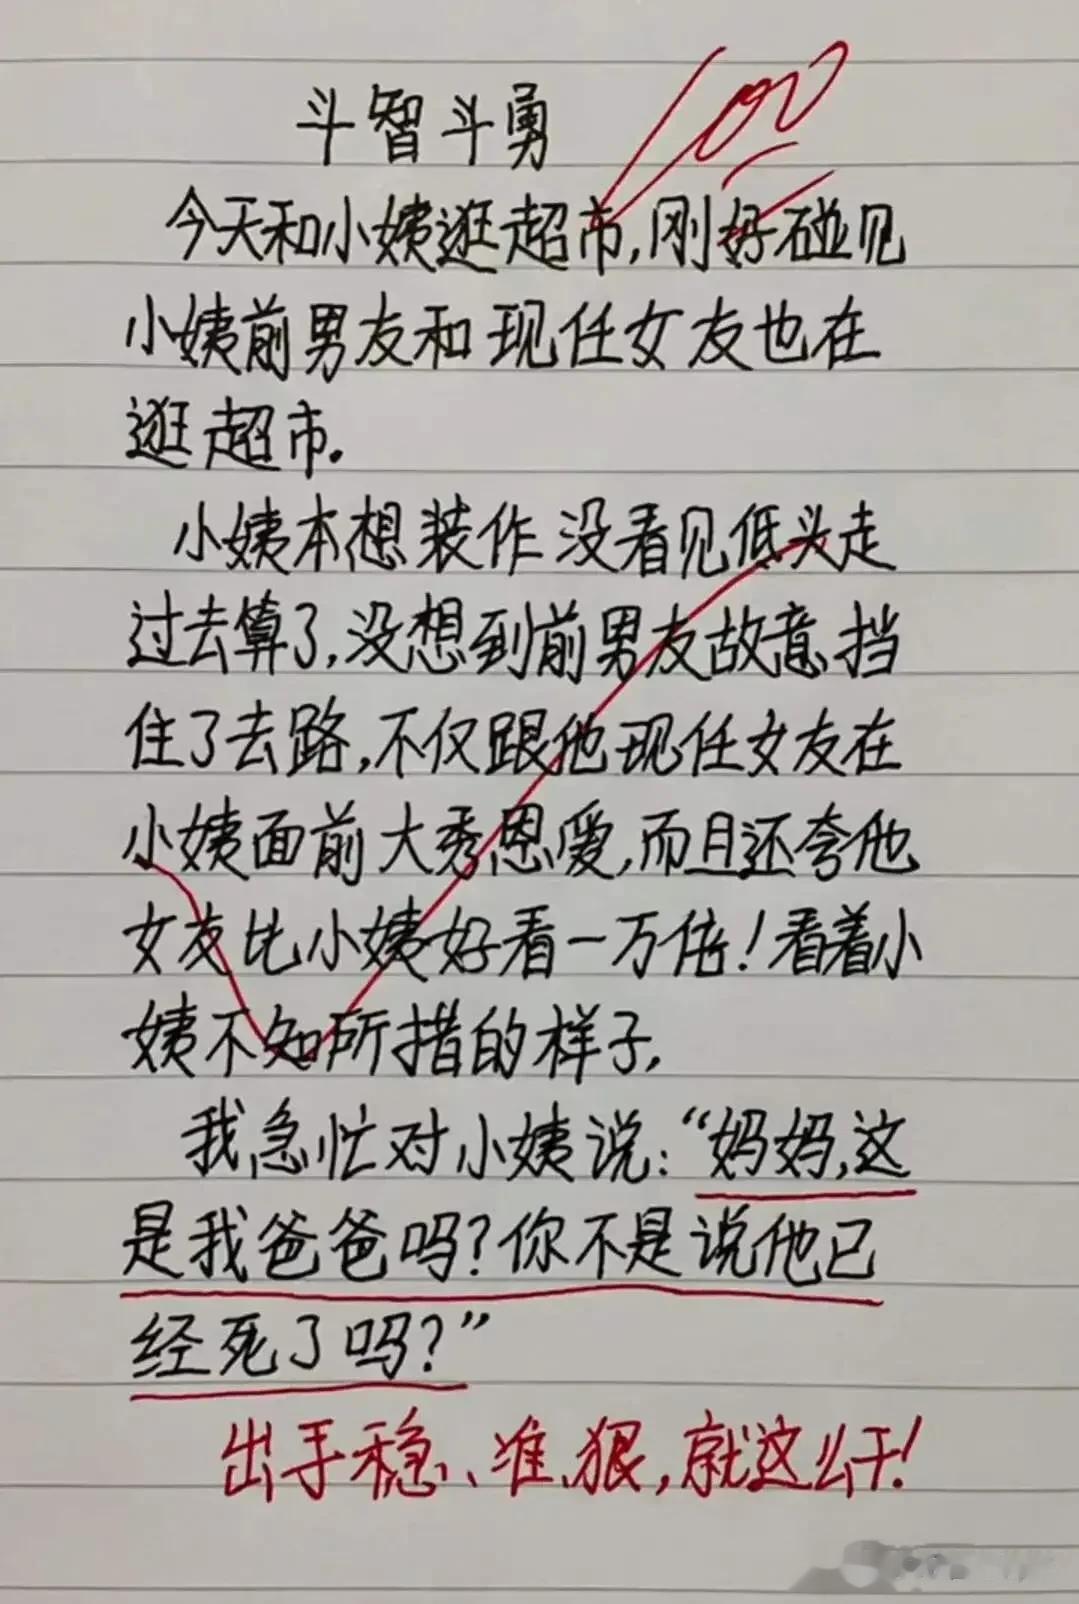 100
斗智斗勇
今天和小姨逛超市,刚好碰见
小姨前男友和现任女友也在
逛超市.
小姨本想装作没看见低头走
过去算了,没想到前男友故意挡
住了去路,不仅跟他现任女友在
小姨面前大秀恩爱,而且还夸他
女友比小姨好看一万倍!看着小
姨不知所措的样子,
我急忙对小姨说:“妈妈,这
是我爸爸吗?你不是说他已
经死了吗?”
出手稳、准、狠,就这么干!